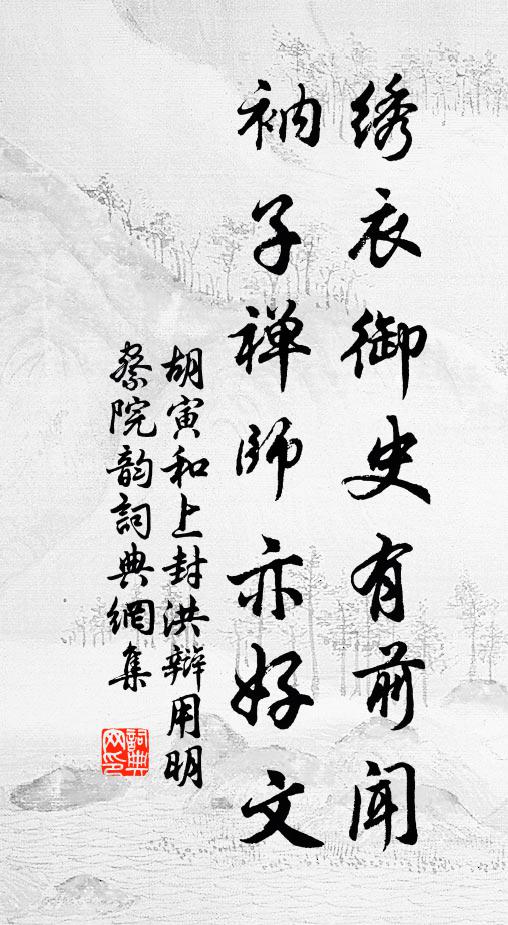 绣衣御史有前闻
衲子禅师亦好文
胡寅和上封洪辩用明
察院韵詞典網集
詞典
网印